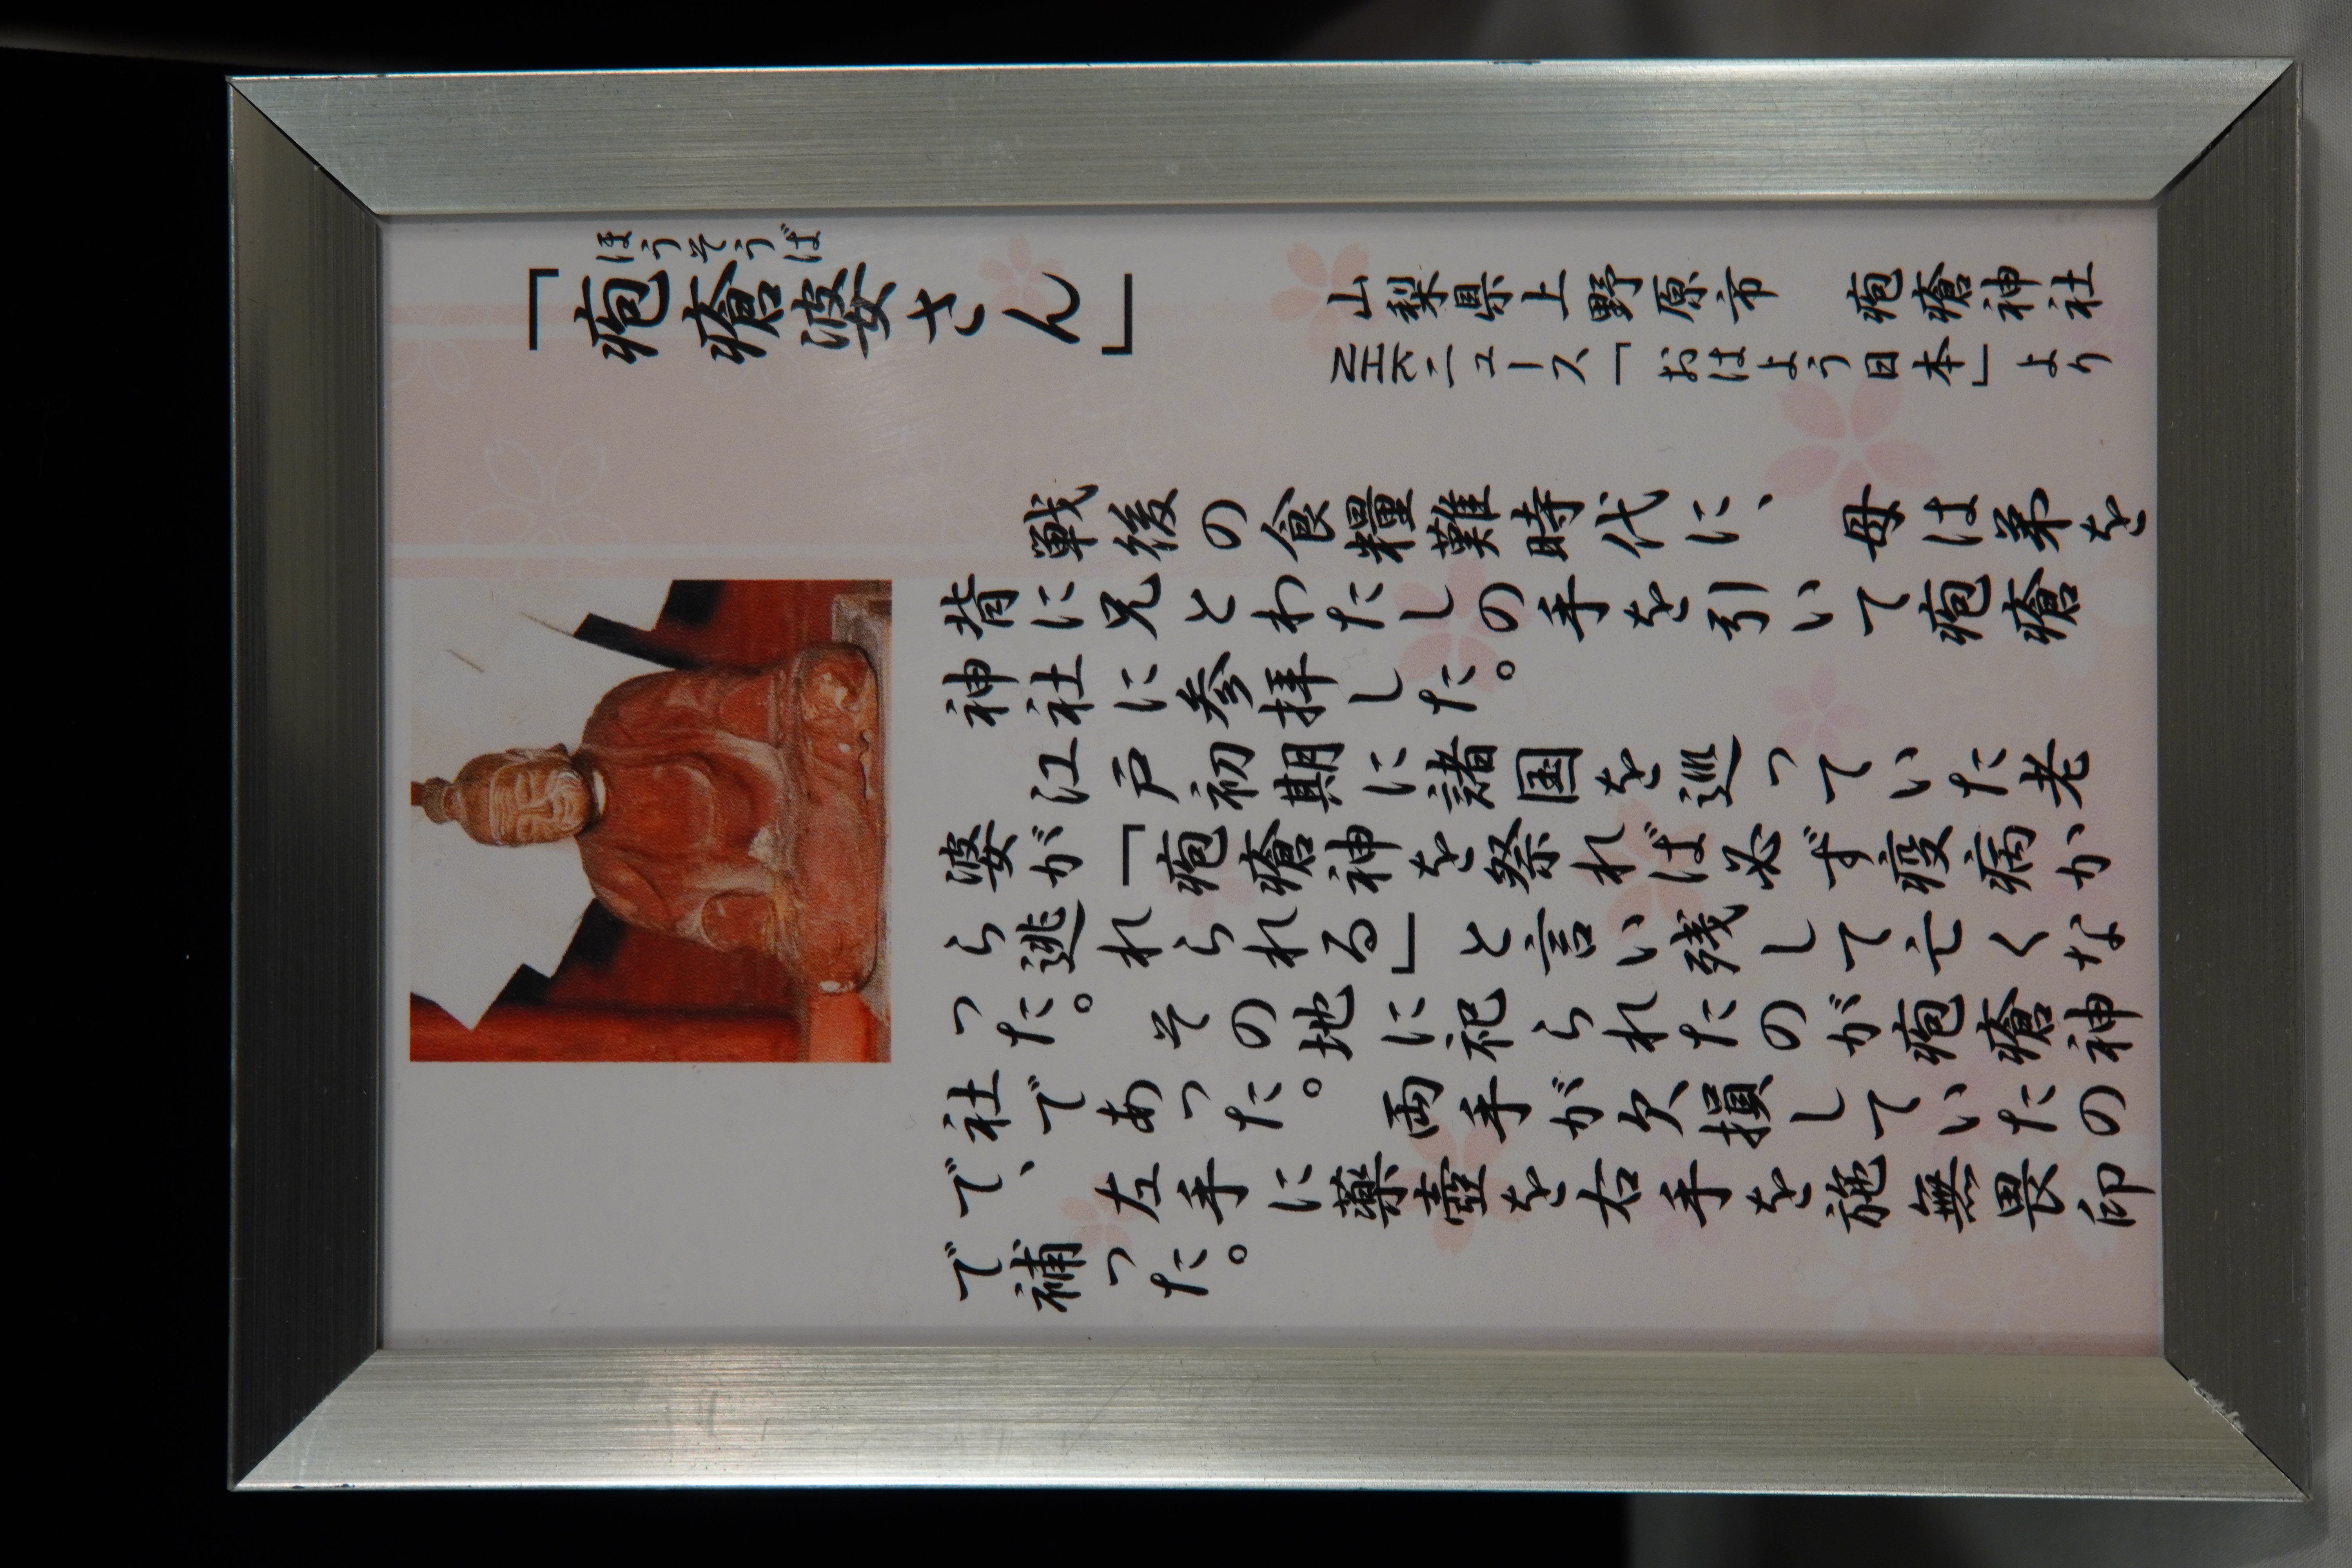 ほうそうば
「疱瘡婆さん」
山梨県上野原市　疱瘡神社
NHKニュース「おはよう日本」より
戦後の食糧難時代に、母は弟を
背に兄とわたしの手を引いて疱瘡
神社に参拝した。
江戸初期に諸国を巡っていた老
婆が「疱瘡神を祭れば必ず疫病か
ら逃れられる」と言い残して亡くな
った。その地に祀られたのが疱瘡神
社であった。両手が欠損していたの
で、左手に薬壺を右手を施無畏印
で補った。